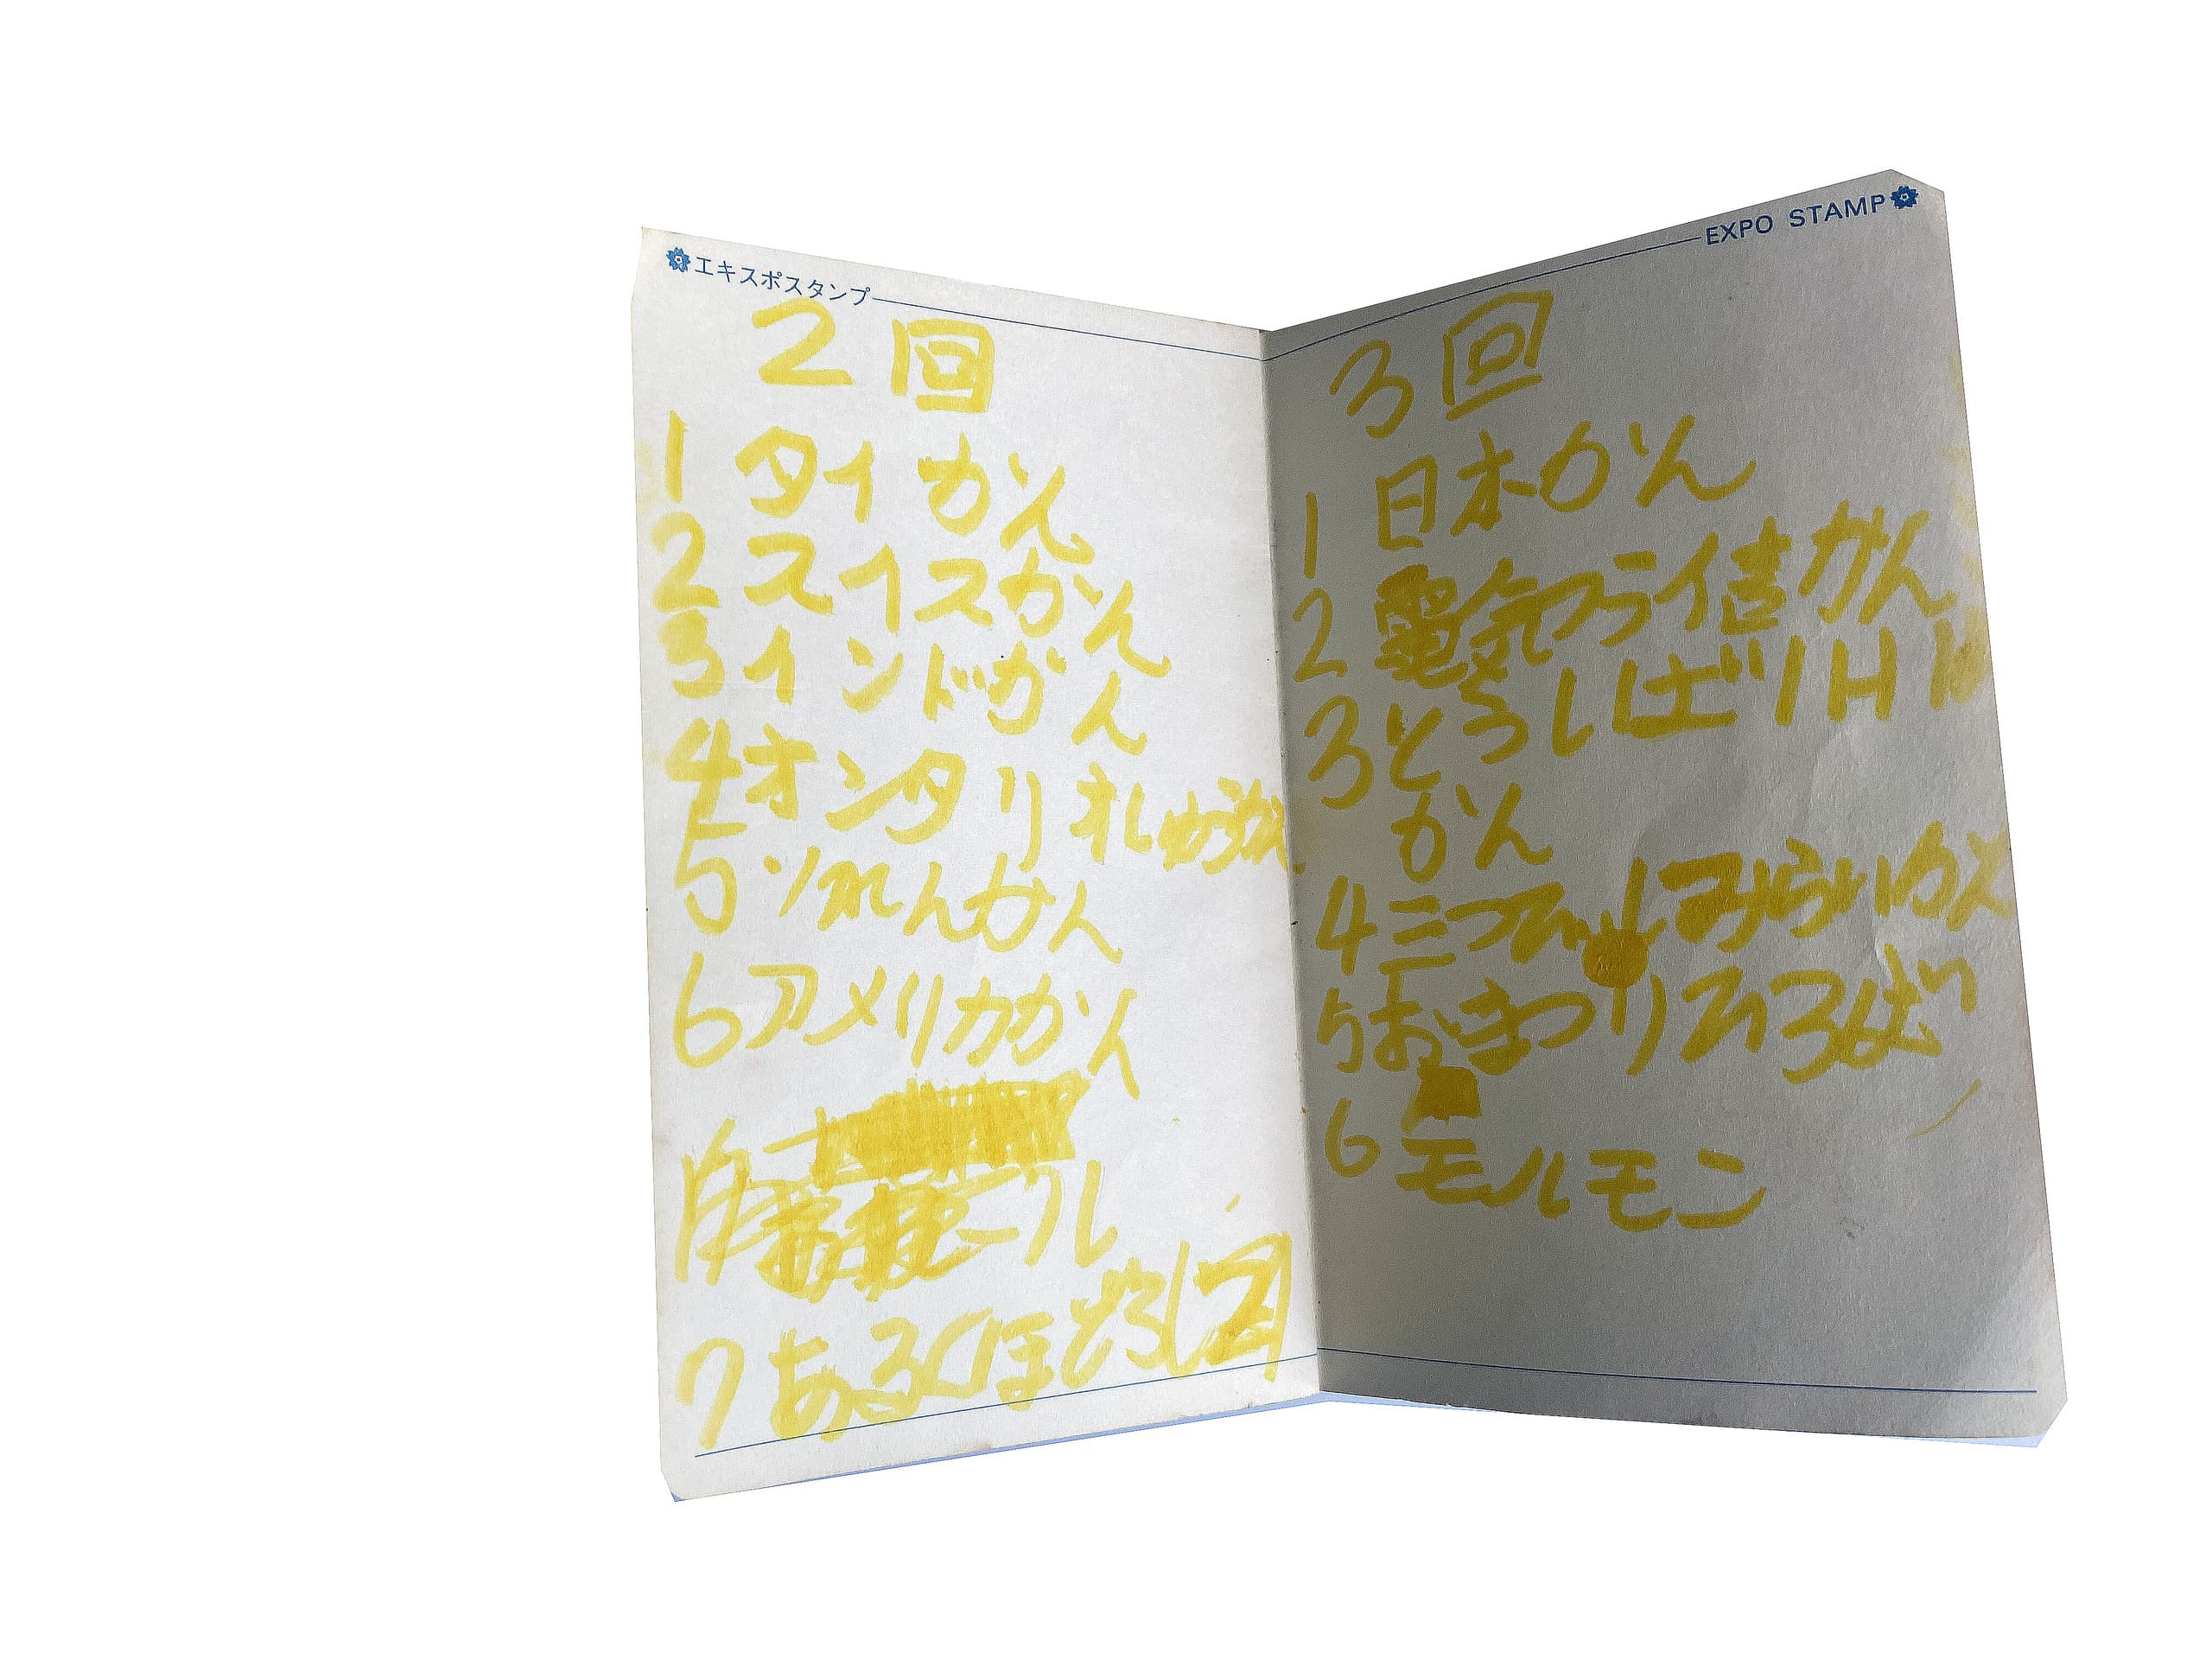 エキスポスタンプ
2回
1 タイかん
2 スイスかん
3 インドかん
4 オンタリオしゅうかん
5 ソれんかん
6 アメリカかん
ール
7 あるくほどうし
EXPO STAMP
3回
1 日本かん
2 電気つう信かん
3 とうしばIHI
かん
4 三つびしみらいかん
5 おまつりひろば
6 モルモン